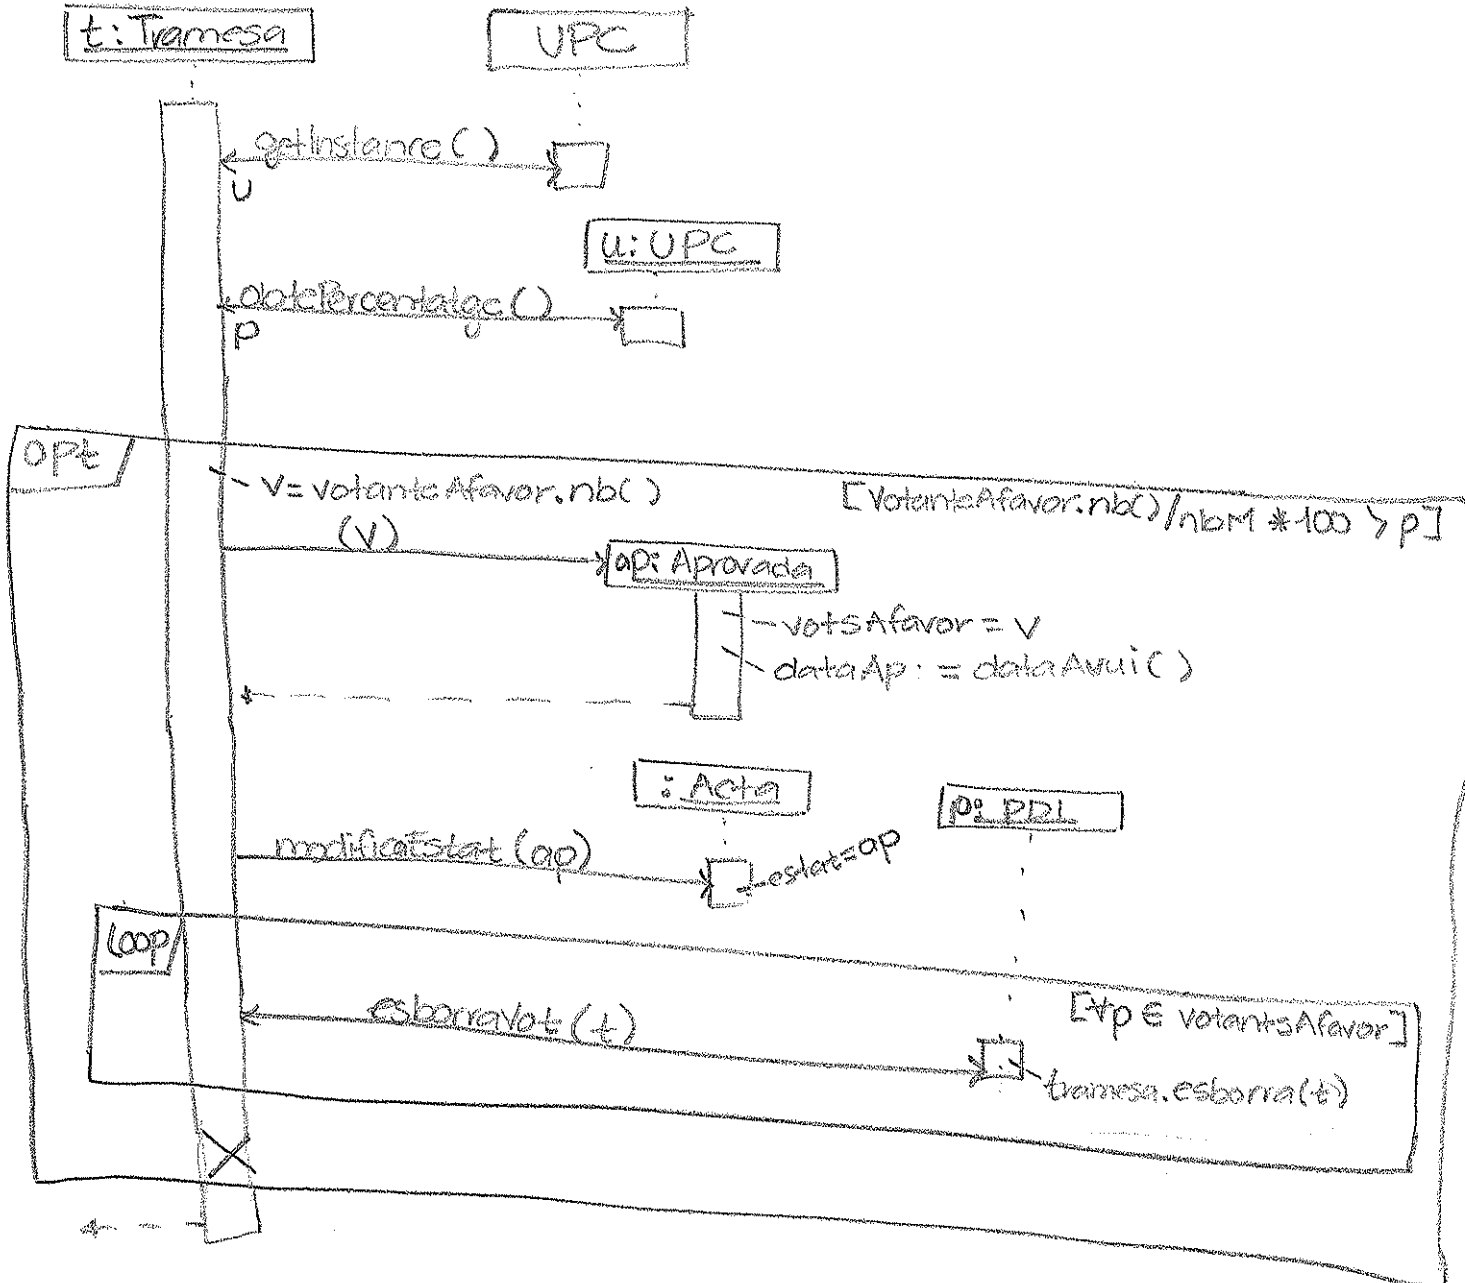 t: Tramesa
UPC
getInstance()
u
u: UPC
obtePercentatge()
p
opt
V = votantsAfavor.nb()
[VotantsAfavor.nb()/nbM * 100 > p]
(V)
ap: Aprovada
votsAfavor = V
dataAp := dataAvui()
: Acta
p: PDI
modificaEstat(ap)
estat=ap
loop
[∀p ∈ votantsAfavor]
esborraVot(t)
tramesa.esborra(t)